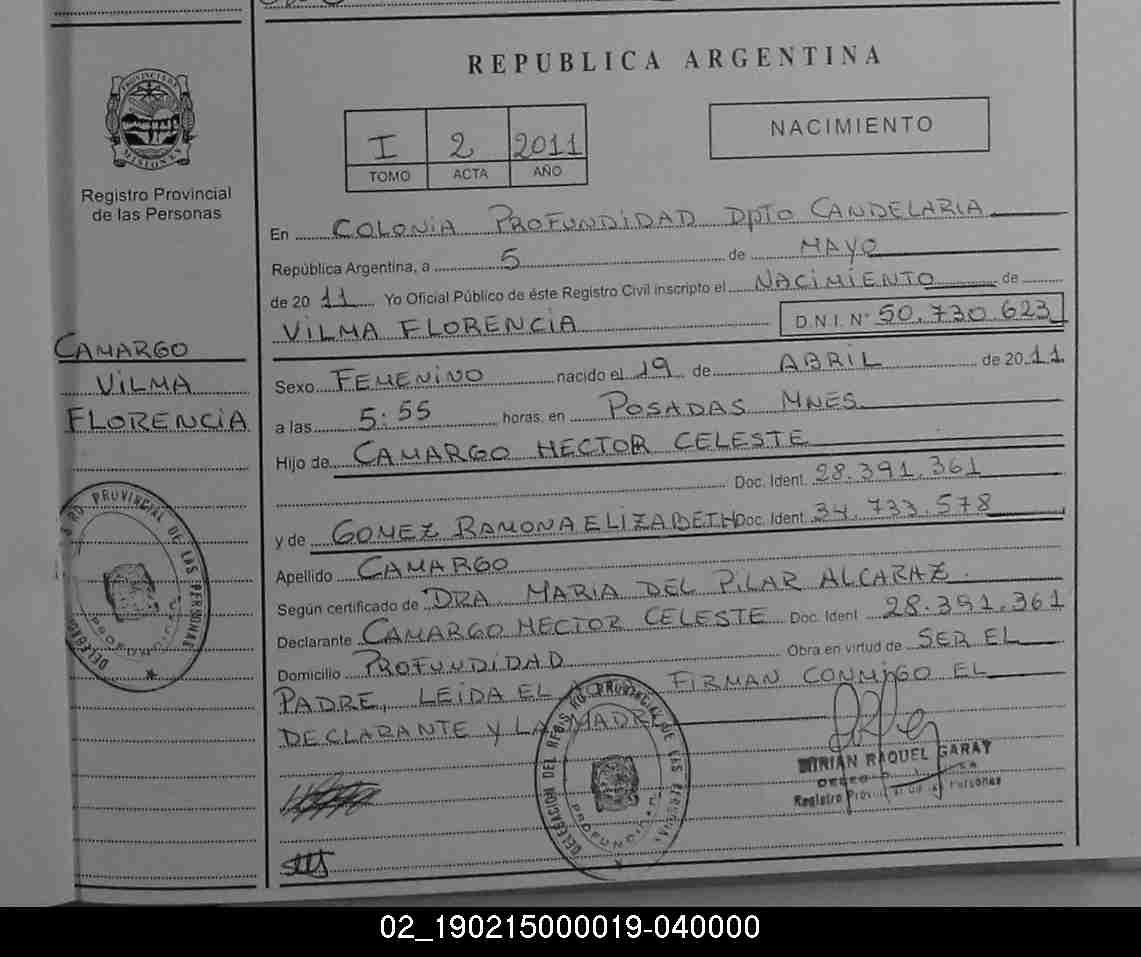 REPUBLICA ARGENTINA
PROVINCIA DE
MISIONES
Registro Provincial
de las Personas
I 2 2011
TOMO ACTA AÑO
NACIMIENTO
En COLONIA PROFUNDIDAD DPTO CANDELARIA
República Argentina, a 5 de MAYO
de 2011 Yo Oficial Público de éste Registro Civil inscripto el NACIMIENTO de
VILMA FLORENCIA D.N.I. N° 50.730.623
CAMARGO
VILMA
FLORENCIA
Sexo FEMENINO nacido el 19 de ABRIL de 2011
a las 5:55 horas, en POSADAS MNES
Hijo de CAMARGO HECTOR CELESTE
Doc. Ident. 28.391.361
y de GOMEZ RAMONA ELIZABETH Doc. Ident. 34.733.578
Apellido CAMARGO
Según certificado de DRA MARIA DEL PILAR ALCARAZ.
Declarante CAMARGO HECTOR CELESTE Doc. Ident 28.391.361
Domicilio PROFUNDIDAD Obra en virtud de SER EL
PADRE, LEIDA EL FIRMAN CONMIGO EL
DECLARANTE Y LA MADRE
PROVINCIAL DE LAS PERSONAS
DELEGACION DEL REGISTRO PROVINCIAL DE LAS PERSONAS
PROFUNDIDAD
MIRIAN RAQUEL GARAY
Registro Provincial de las Personas
02_190215000019-040000